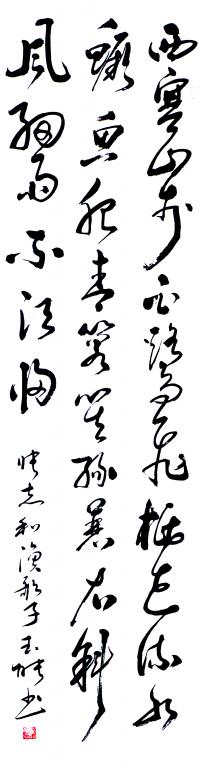 西塞山前白鹭鸟飞桃花流水
鳜鱼肥青箬笠绿蓑衣斜
风细雨不须归
张志和渔歌子玉书